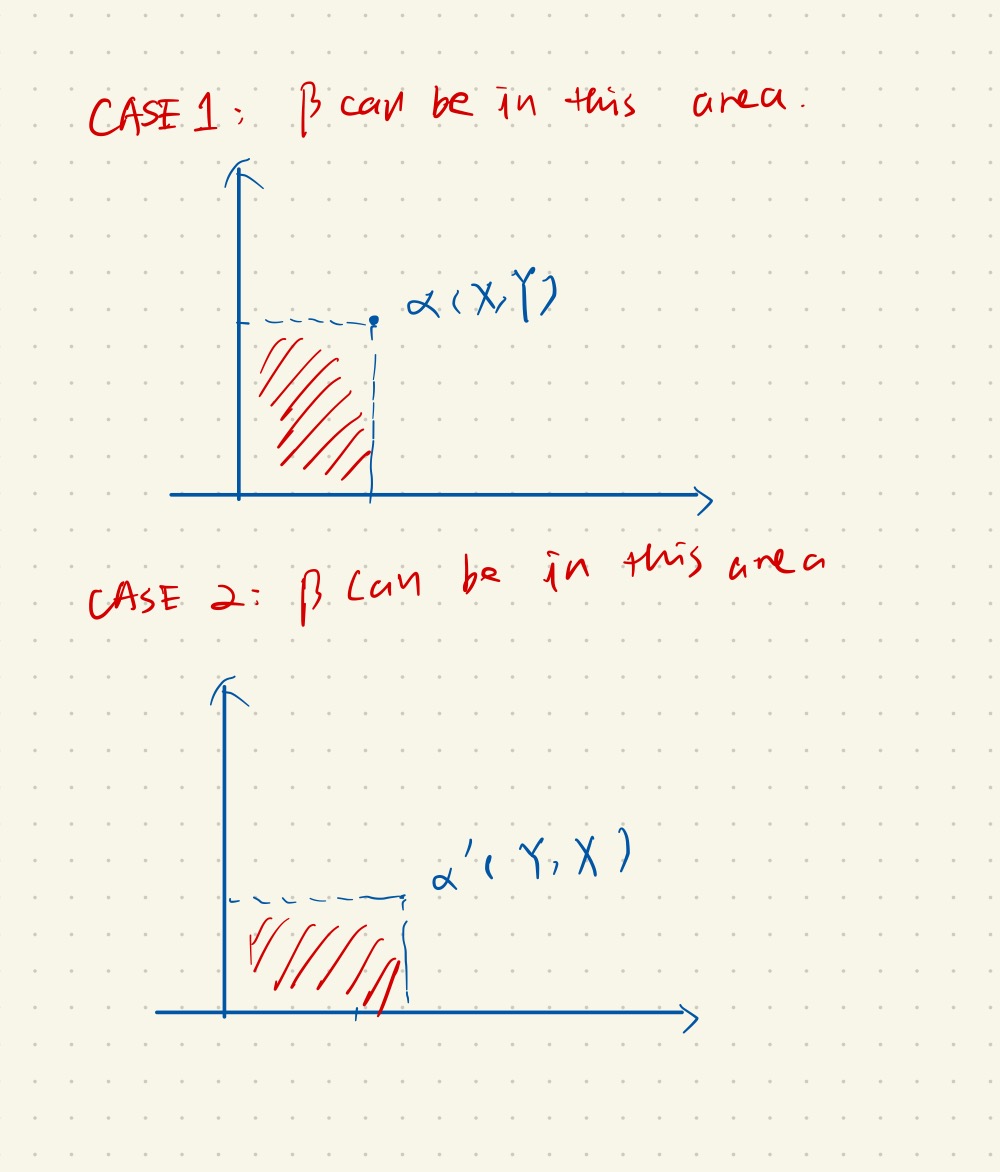 CASE 1: β can be in this area.
α(X,Y)
CASE 2: β can be in this area
α'(Y,X)